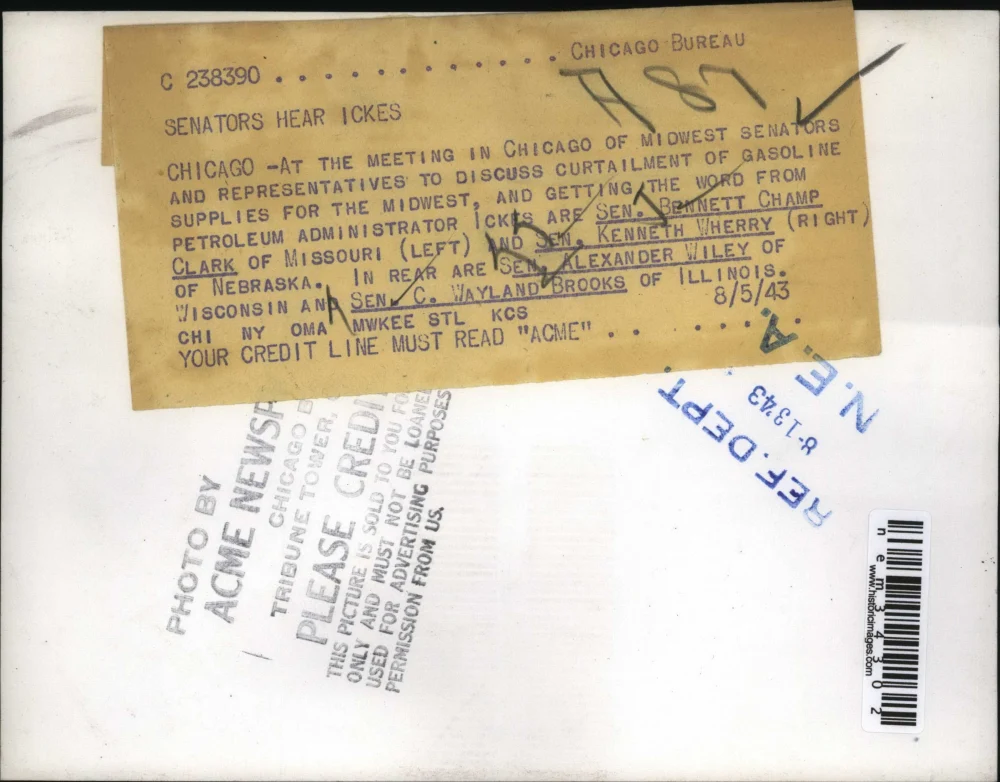 C 238390 . . . . . . . . . . . . . CHICAGO BUREAU
SENATORS HEAR ICKES
CHICAGO -AT THE MEETING IN CHICAGO OF MIDWEST SENATORS
AND REPRESENTATIVES TO DISCUSS CURTAILMENT OF GASOLINE
SUPPLIES FOR THE MIDWEST, AND GETTING THE WORD FROM
PETROLEUM ADMINISTRATOR ICKES ARE SEN. BENNETT CHAMP
CLARK OF MISSOURI (LEFT) AND SEN. KENNETH WHERRY (RIGHT)
OF NEBRASKA. IN REAR ARE SEN. ALEXANDER WILEY OF
WISCONSIN AND SEN. C. WAYLAND BROOKS OF ILLINOIS.
8/5/43
CHI NY OMA MWKEE STL KCS
YOUR CREDIT LINE MUST READ "ACME" . . . . . . . .
PHOTO BY
ACME NEWSP
CHICAGO B
TRIBUNE TOWER,
PLEASE CREDI
THIS PICTURE IS SOLD TO YOU FO
ONLY AND MUST NOT BE LOANE
USED FOR ADVERTISING PURPOSES
PERMISSION FROM US.
N.E.A.
8-13-43
REF. DEPT.
nem34302
www.historicimages.com